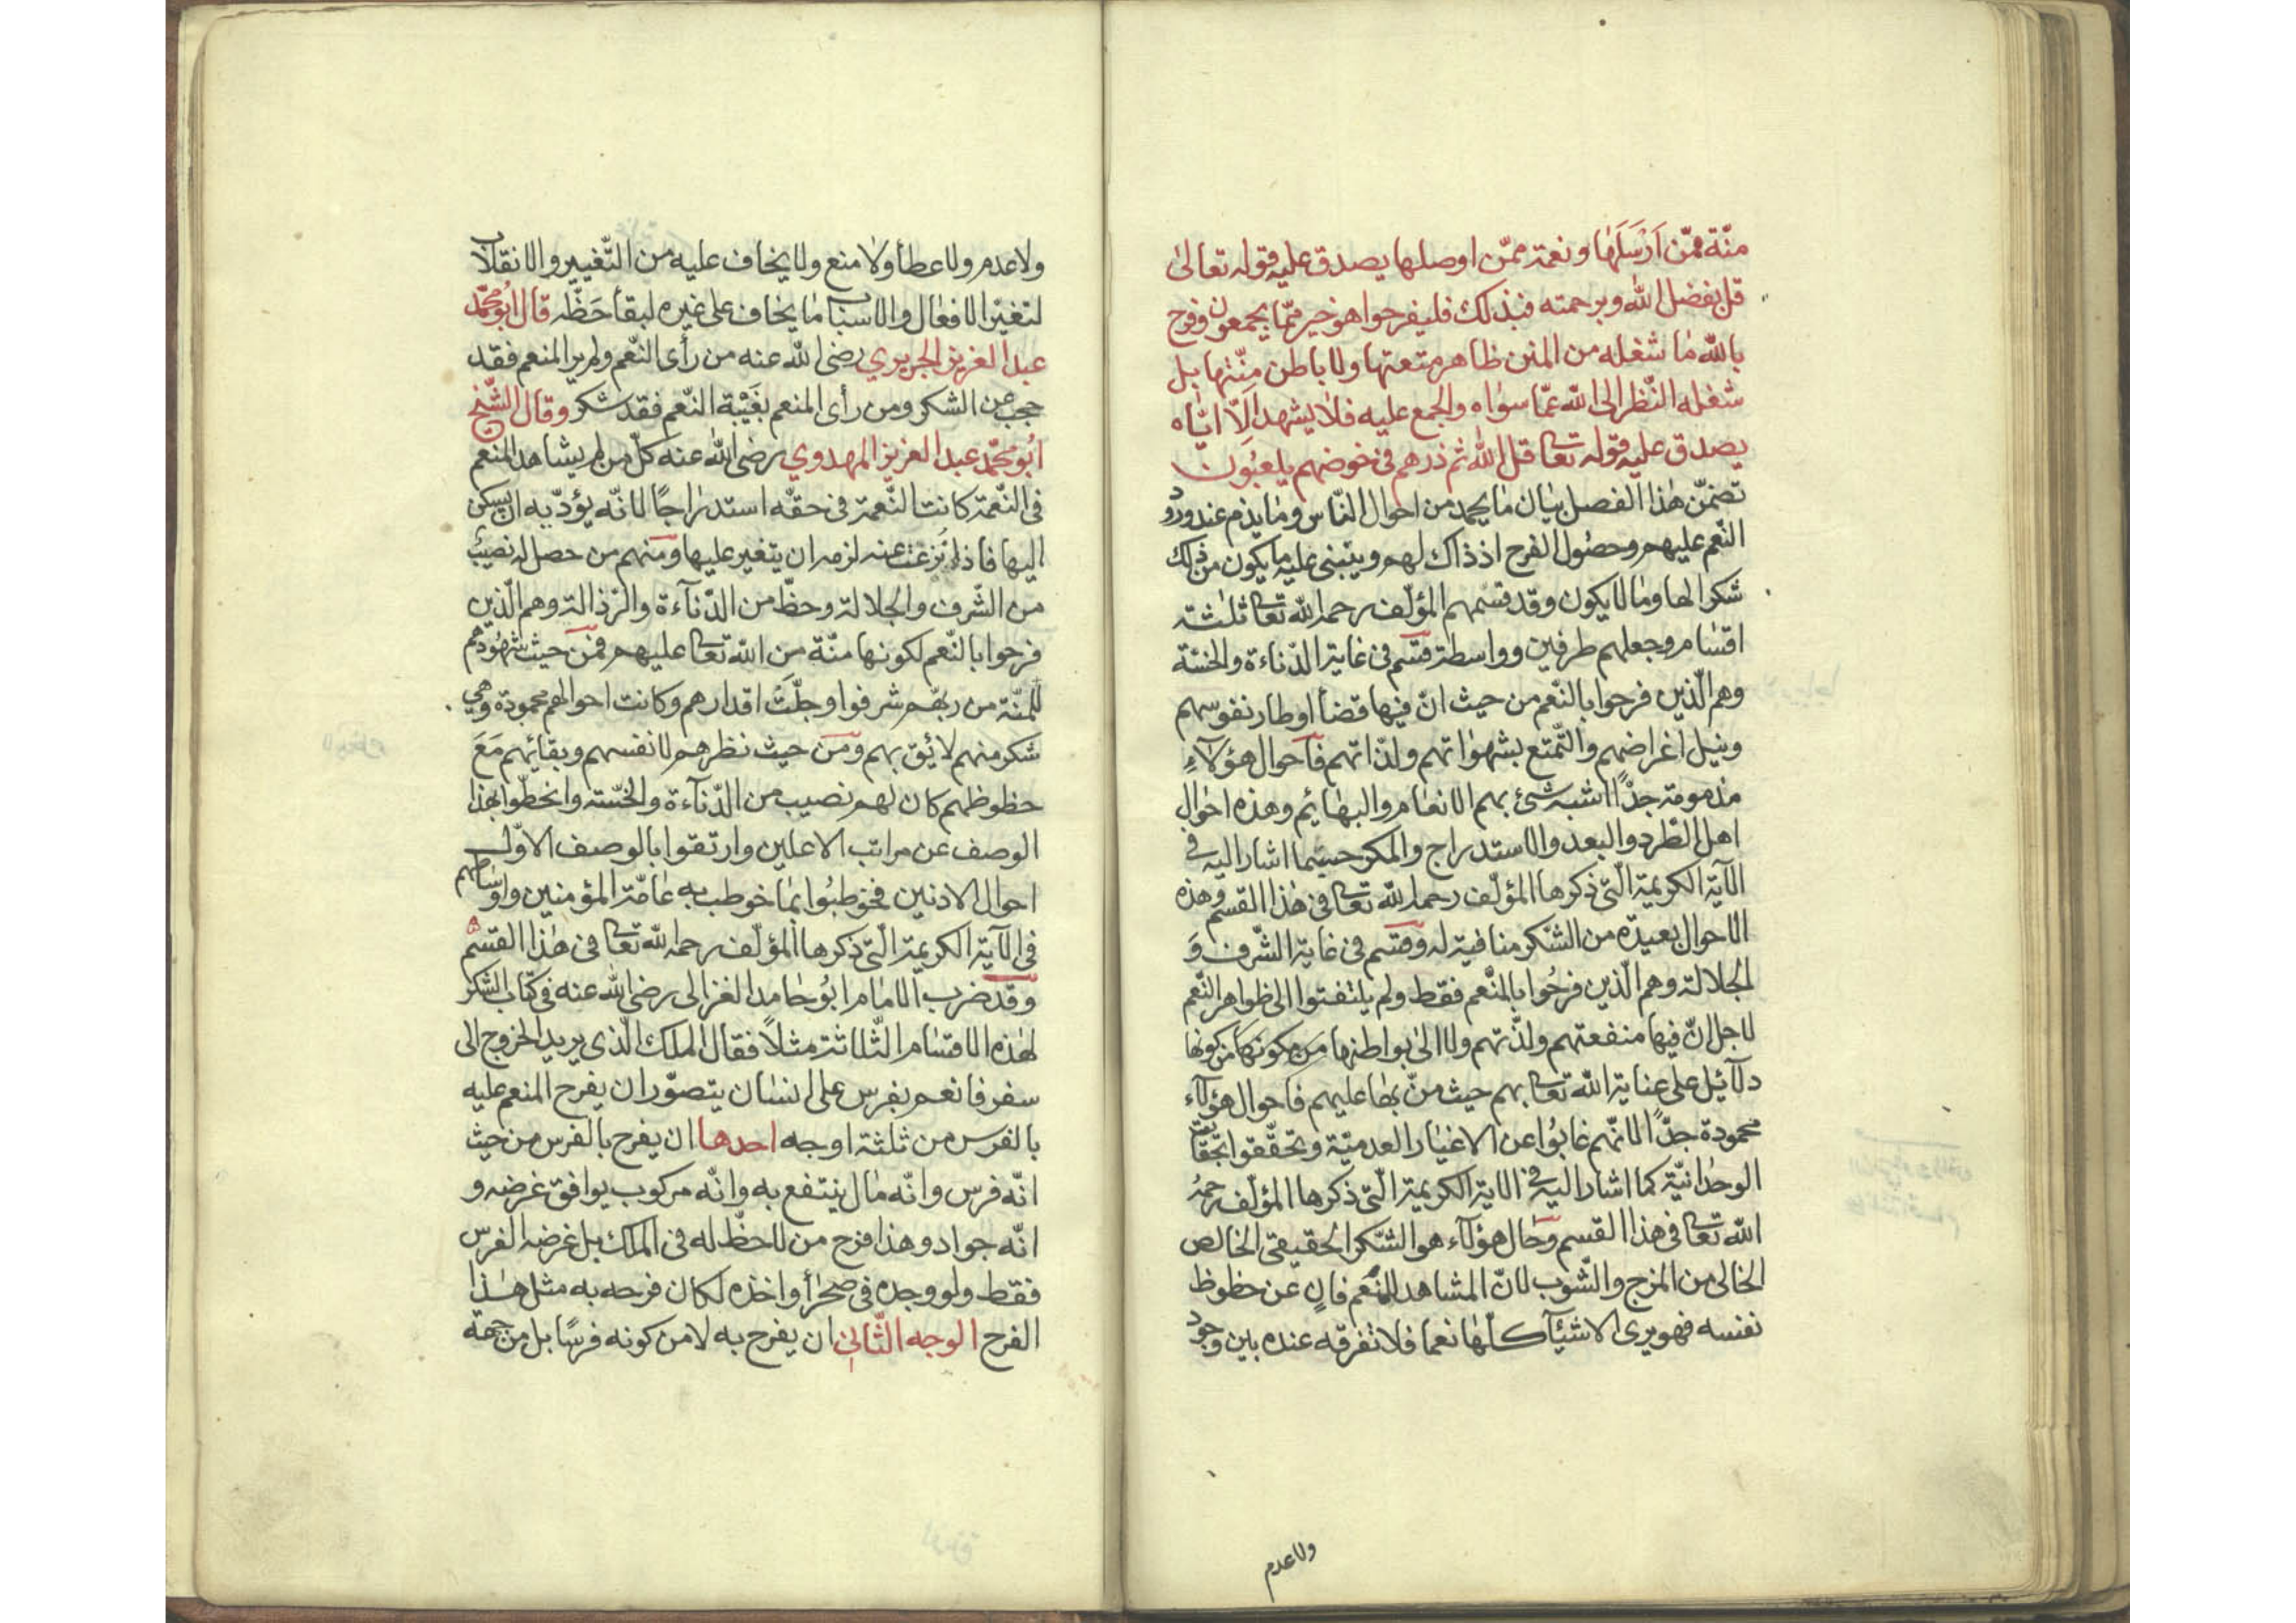 منّة ممّن اَرْسَلَهَا ونعمة ممّن اوصلها يصدق عليه قوله تعالى
قل بفضل الله وبرحمته فبذلك فليفرحوا هو خير ممّا يجمعون وفرح
بالله ما شغله من المنن ظاهر متعتها ولا باطن منّتها بل
شغله النّظر الى الله عمّا سواه والجمع عليه فلا يشهد الّا ايّاه
يصدق عليه قوله تعا قل الله ثم ذرهم فى خوضهم يلعبون
تضمّن هذا الفصل بيان ما يحمد من احوال النّاس وما يذم عند ورود
النّعم عليهم وحصول الفرح اذ ذاك لهم وينبنى عليه ما يكون من ذلك
شكرا لها وما لا يكون وقد قسّمهم المؤلّف رحمه الله تعا ثلثة
اقسام وجعلهم طرفين وواسطة قسم فى غاية الدّناءة والخسّة
وهم الّذين فرحوا بالنّعم من حيث انّ فيها قضأ اوطار نفوسهم
ونيل اغراضهم والتّمتع بشهواتهم ولذّاتهم فاحوال هؤلآء
مذمومة جدًّا اشبه شئ بهم الانعام والبهائم وهذه احوال
اهل الطّرد والبعد والاستدراج والمكر حسبما اشار اليه فى
الآية الكريمة الّتى ذكرها المؤلّف رحمه الله تعا فى هذا القسم وهذه
الاحوال بعيدة من الشّكر منافية له وقسم فى غاية الشّرف وَ
الجلالة وهم الّذين فرحُوا بالمنعم فقط ولم يلتفتوا الى ظواهر النّعم
لاجل انّ فيها منفعتهم ولذّتهم ولا الى بواطنها من كونها من كونها
دلآئل على عناية الله تعا بهم حيث منّ بها عليهم فاحوال هؤلآء
محمودة جدًّا لانّهم غابُوا عن الاغيار العدميّة وتحقّقوا بحقائق
الوحدانيّة كما اشار اليه فى الاية الكريمة الّتى ذكرها المؤلّف رحمهُ
الله تعا فى هذا القسم وحال هؤلآء هو الشّكر الحقيقى الخالص
الخالى من المزج والشّوب لانّ المشاهد للمنعم فانٍ عن حظوظ
نفسه فهو يرى الاشيآء كلّها نعما فلا تفرقه عنده بين وجود
ولا عدم
ولا عدم ولا عطأ ولا منع ولا يخاف عليه من التّغيير والانقلاب
لتغيّر الافعال والاسباب ما يخاف على غيره لبقأ حَظّه قال ابُو محمّد
عبد العزيز الجريري رضى الله عنه من رأى النّعم ولم ير المنعم فقد
حجب عن الشكر ومن رأى المنعم بغَيْبة النّعم فقد شكر وقال الشّيخ
ابُو محمّد عبد العزيز المهدوي رضى الله عنه كلّ من لم يشاهد المنعم
فى النّعمة كانت النّعمة فى حقّه استدراجًا لانّه يؤدّيه ان يسكن
اليها فاذا نُزعت عنه لزمه ان يتغير عليها ومنهم من حصل له نصيبٌ
من الشّرف والجلالة وحظّ من الدّنآءة والرّذالة وهم الّذين
فرحوا بالنّعم لكونها منّة من الله تعا عليهم فمن حيث شهُودهم
للمنّة من ربّهم شرفوا وجلّتْ اقدارهم وكانت احوالهم محمودة وهى
شكر منهم لائق بهم ومن حيث نظرهم لانفسهم وبقائهم مَعَ
حظوظهم كان لهم نصيب من الدّنآءة والخسّة وانحطّوا بهذا
الوصف عن مراتب الاعلين وارتقوا بالوصف الاوّل
احوال الادنين فخوطبُوا بما خوطب به عامّة المؤمنين واوساطهم
فى الآية الكريمة الّتى ذكرها المؤلّف رحمه الله تعا فى هذا القسم
وقد ضرب الامام ابُو حامد الغزالى رضى الله عنه فى كتاب الشكر
لهذه الاقسام الثّلاثة مثلاً فقال الملك الّذى يريد الخروج الى
سفر فانعم بفرس على انسان يتصوّر ان يفرح المنعم عليه
بالفرس من ثلثة اوجه احدها ان يفرح بالفرس من حيث
انّه فرس وانّه مال ينتفع به وانّه مركوب يوافق غرضه و
انّه جواد وهذا فرح من لا حظّ له فى الملك بل غرضه الفرس
فقط ولو وجده فى صحرأ واخذه لكان فرحه به مثل هذا
الفرح الوجه الثّانى ان يفرح به لا من كونه فرسًا بل من جهة